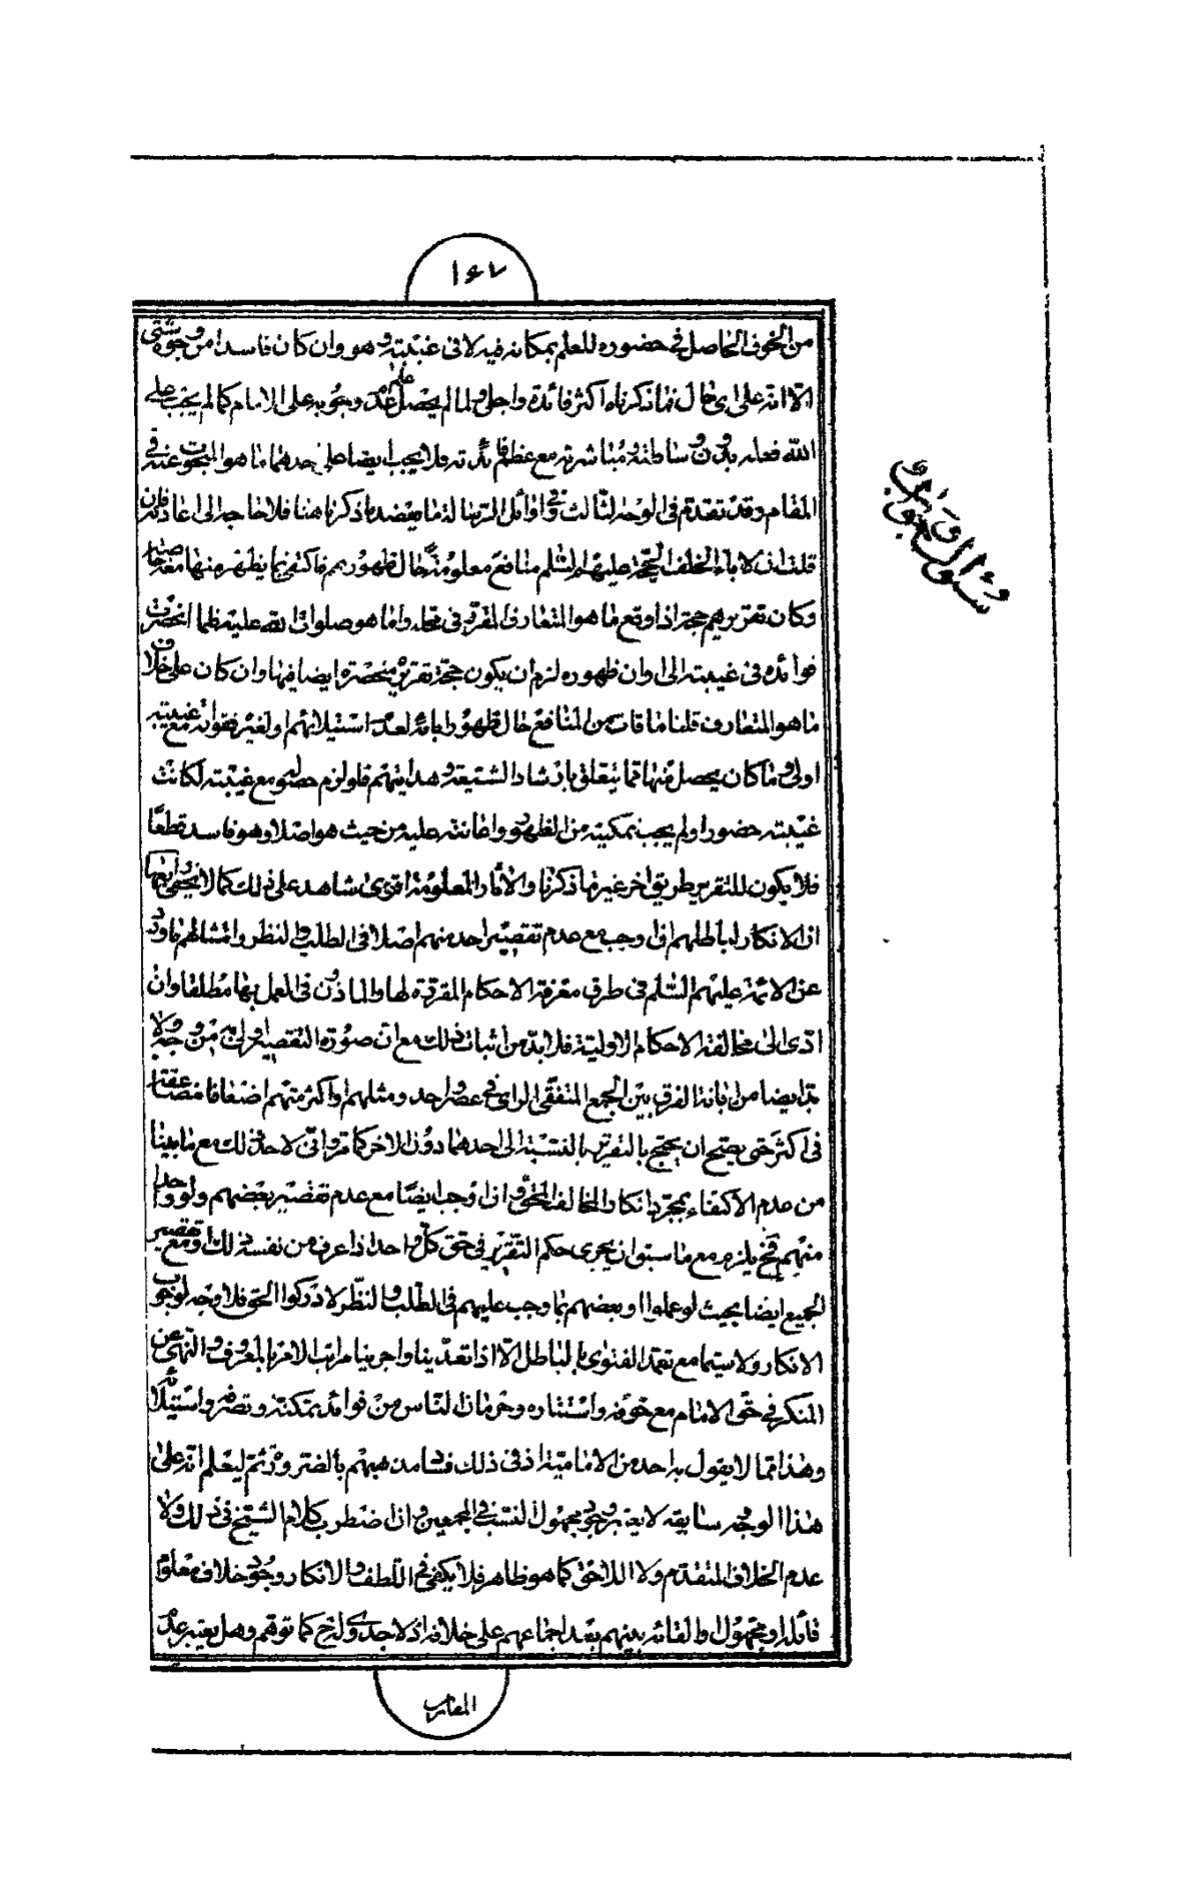 ١٦٧
من الخوف الحاصل في حضوره للعلم بمكانه فيه لا في غيبته وهو وان كان فاسدا من وجوه شتى
الا انه على اى حال فما ذكرناه اكثر فائدة واجلى ولما لم يحصل علم عدم وجوبه على الامام كما لم يجب على
الله فعله بدون وساطته ومباشرته مع عظم فائدته فلا يجب ايضا على حدهما ما هو المبحوث عنه في
المقام وقد تقدم في الوجه الثالث وفي اوائل الرسالة ما يعضد ما ذكرنا هنا فلا حاجة الى اعادته فان
قلت ان لاباء الخلف الحجة عليهم السلم منافع معلومة حال ظهورهم فاكتفى بما يظهر منها
وكان تقريرهم حجة اذا وقع ما هو المتعارف المقرر في محله واما هو صلوات الله عليه فلما انحصرت
فوائده في غيبته الى اوان ظهوره لزم ان يكون حجة تقريره منحصرة ايضا فيها وان كان على خلاف
ما هو المتعارف قلنا ما فات من المنافع حال ظهور ابائه لعدم استيلائهم او لغيره ففواته مع غيبته
اولى وما كان يحصل منها مما يتعلق بارشاد الشيعة وهدايتهم فلو لزم حصوله مع غيبته لكانت
غيبته حضورا ولم يجب تمكينه من الظهور واعانته عليه من حيث هو اصلا وهو فاسد قطعا
فلا يكون للتقرير طريق اخر غير ما ذكرنا والاثار المعلومة اقوى شاهد على ذلك كما لا يخفى رابعها
ان الانكار لباطلهم ان وجب مع عدم تقصير احد منهم اصلا في الطلب والنظر وامتثالهم ما ورد
عن الائمة عليهم السلم في طرق معرفة الاحكام المقررة لها والماذون في العمل بها مطلقا وان
ادى الى مخالفة الاحكام الاولية فلا بد من اثبات ذلك مع ان صورة التقصير اولى منه من وجه ولا
بد ايضا من ابانة الفرق بين الجمع المتفقى الراى في عصر واحد ومثلهم واكثر منهم اضعافا مضاعفة
في اكثر حتى يصح ان يحتج بالتقرير بالنسبة الى احدهما دون الاخر كما مر وانى لاحد ذلك مع ما بينا
من عدم الاكتفاء بمجرد انكار المخالف المحق وان وجب ايضا مع عدم تقصير بعضهم ولو واحدا
منهم فح يلزم مع ما سبق ان يجرى حكم التقرير في حق كل واحد اذا عرف من نفسه ذلك او مع تقصير
الجميع ايضا بحيث لو عملوا او بعضهم بما وجب عليهم في الطلب والنظر لادركوا الحق فلا وجه لوجوب
الانكار ولا سيما مع تعمد الفتوى بالباطل الا اذا تعدينا واجرينا مراتب الامر بالمعروف والنهى عن
المنكر في حق الامام مع خوفه واستتاره وحرمان الناس من فوائد تمكنه وتصرفه واستيلائه
وهذا مما لا يقول به احد من الامامية اذ في ذلك فساد مذهبهم بالضرورة ثم ليعلم انه على
هذا الوجه وسابقه لا يعتبر وجود مجهول النسب في المجمعين وان اضطرب كلام الشيخ في ذلك ولا
عدم الخلاف المتقدم ولا اللاحق كما هو ظاهر فلا يكفى في اللطف والانكار وجود خلاف معلوم
قائله او مجهول والقائه بينهم بعد اجماعهم على خلافه اذ لا جدوى لذلك كما توهم وهل يعتبر عدم
سؤال وجواب
المعارف